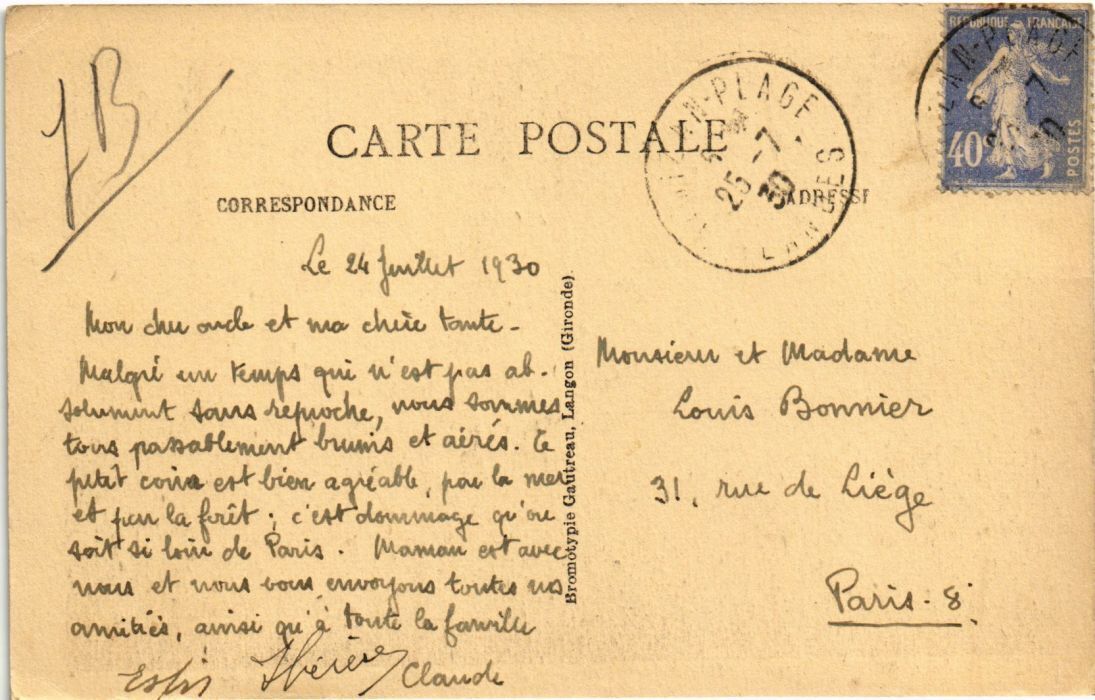 JB
CARTE POSTALE
CORRESPONDANCE
ADRESSE
RÉPUBLIQUE FRANÇAISE
40c
POSTES
MIZAN-PLAGE
25 -7
30
LANDES
Le 24 Juillet 1930
Mon cher oncle et ma chère tante -
Malgré un temps qui n'est pas ab-
solument sans reproche, nous sommes
tous passablement brunis et aérés. Ce
petit coin est bien agréable, par la mer
et par la forêt ; c'est dommage qu'on
soit si loin de Paris. Maman est avec
nous et nous vous envoyons toutes nos
amitiés, ainsi qu'à toute la famille
Thérèse Claude
Bromotypie Gautreau, Langon (Gironde).
Monsieur et Madame
Louis Bonnier
31, rue de Liège
Paris - 8